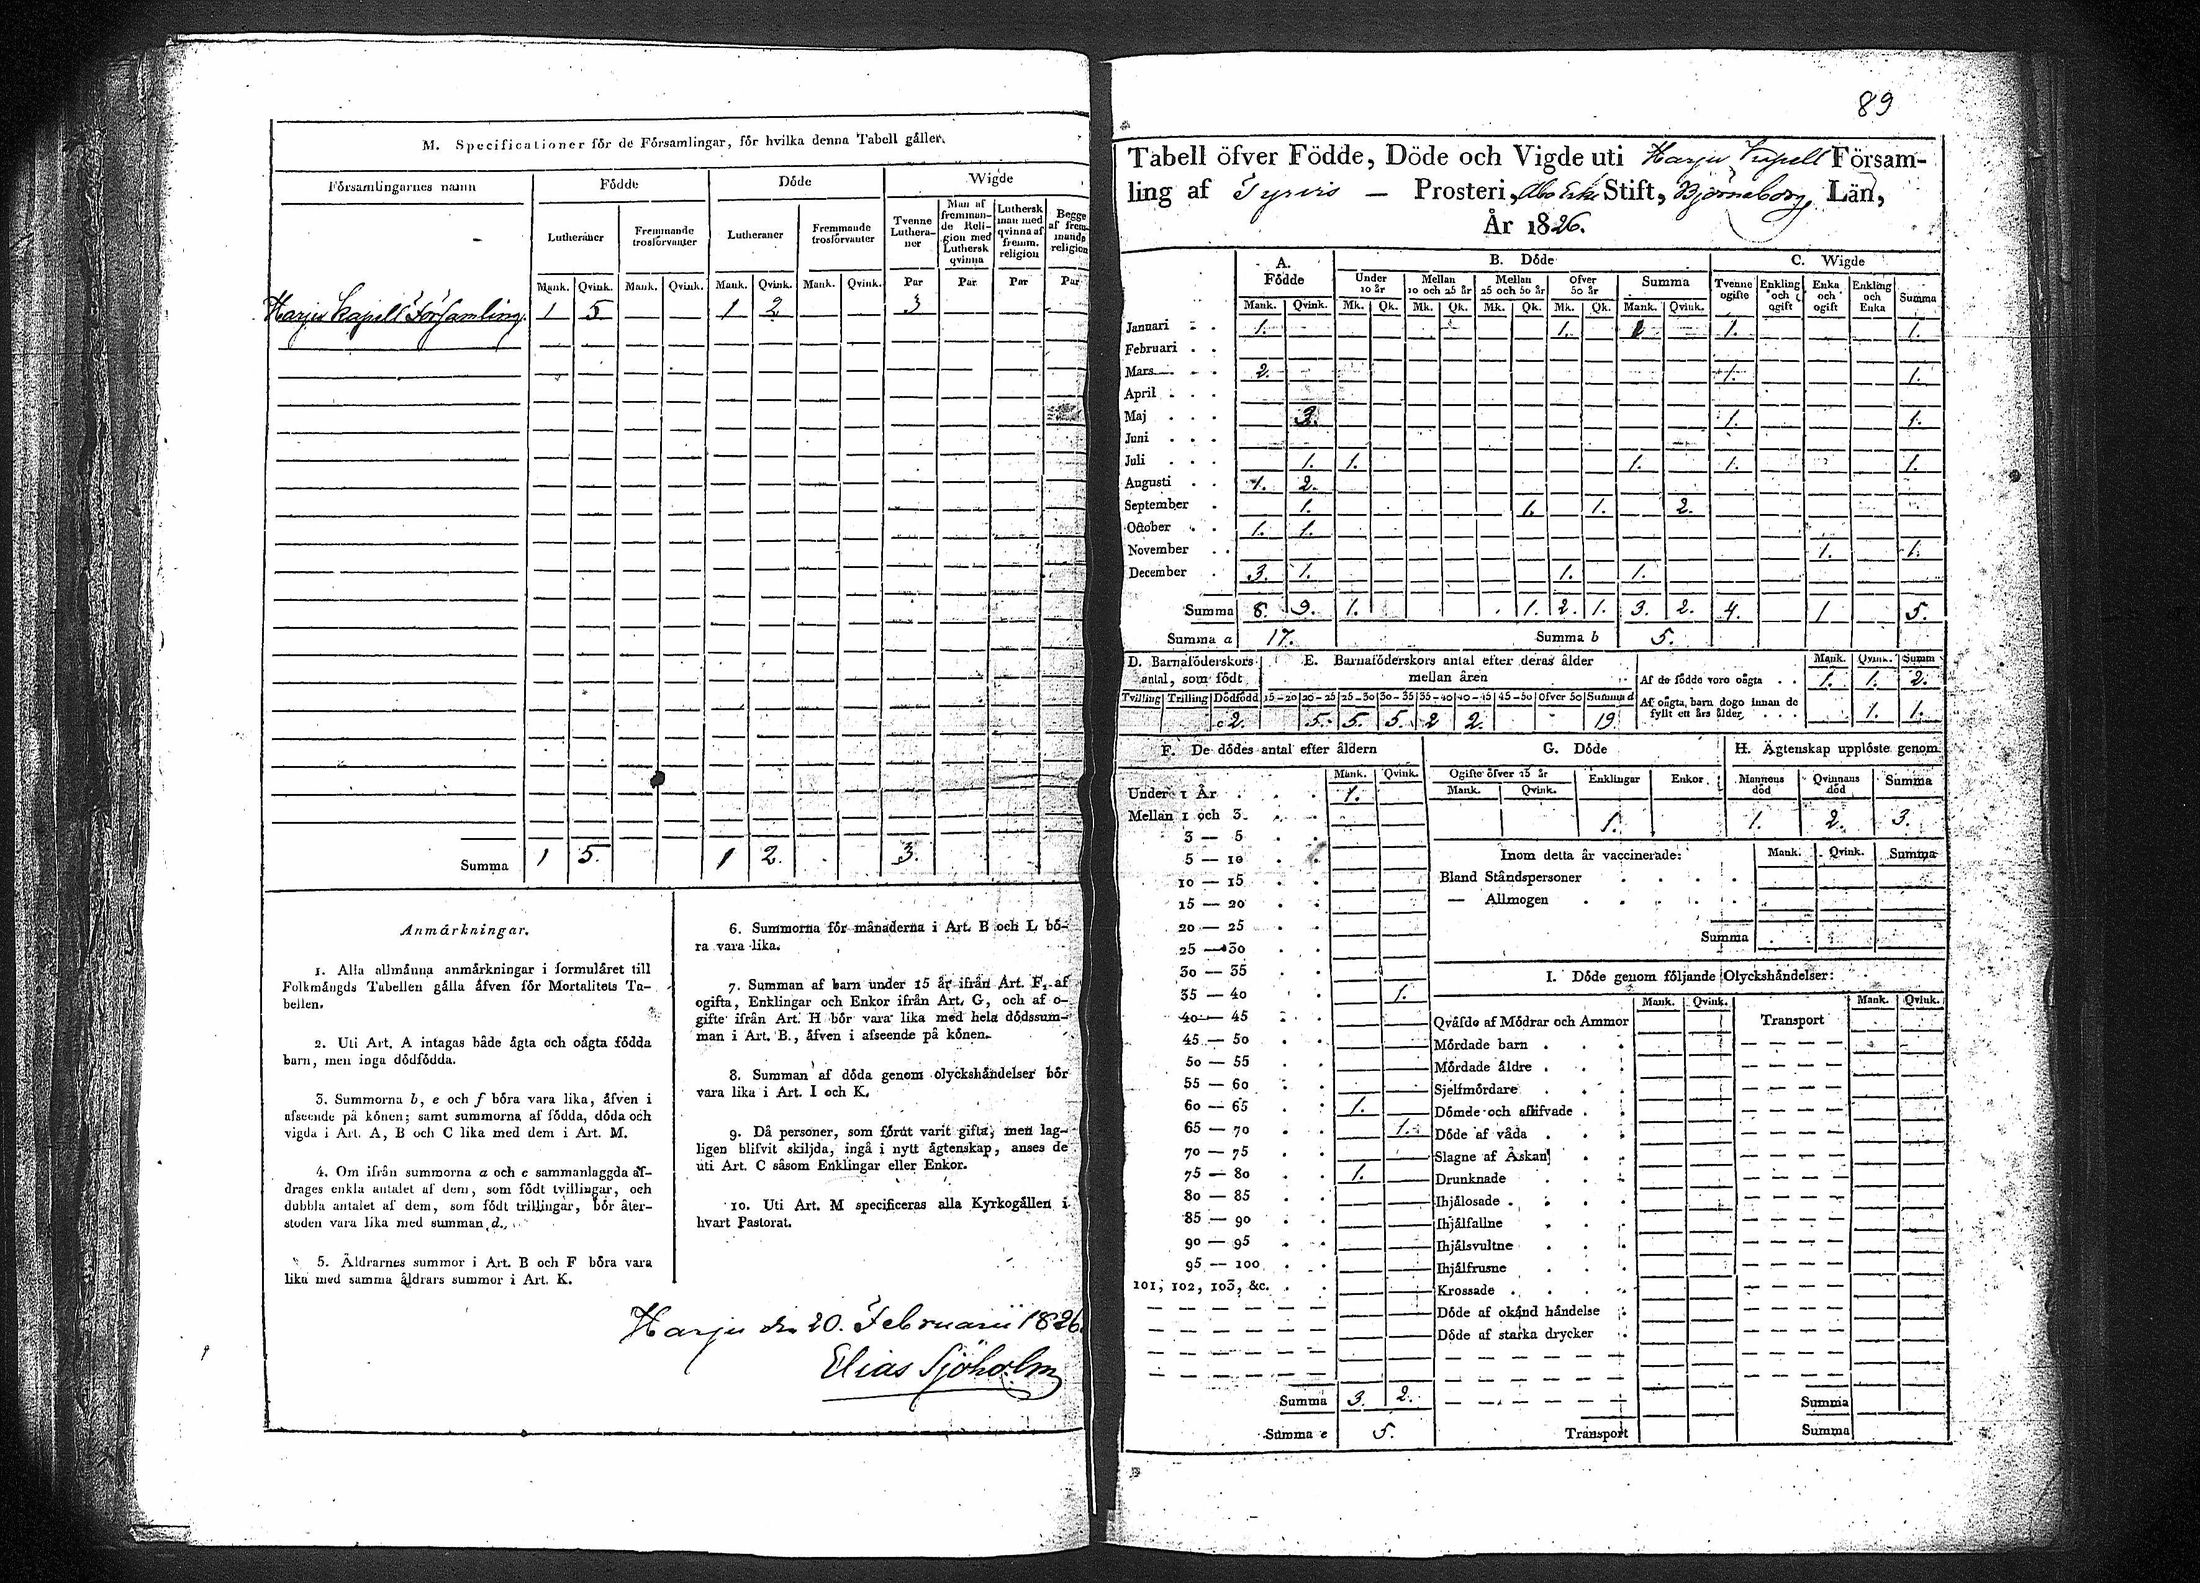 M. Specificationer för de Församlingar, för hvilka denna Tabell gäller.
Församlingarnes namn | Födde | Döde | Wigde
Lutheraner | Fremmande trosförvanter | Lutheraner | Fremmande trosförvanter | Tvenne Lutheraner | Man af fremmande Religion med Luthersk qvinna | Luthersk man med qvinna af fremm. religion | Begge af fremmande religion
Mank. | Qvink. | Mank. | Qvink. | Mank. | Qvink. | Mank. | Qvink. | Par | Par | Par | Par
Harju Kapells Församling. 1 5 1 2 3
Summa 1 5. 1 2. 3.
Anmärkningar.
1. Alla allmänna anmärkningar i formuläret till
Folkmängds Tabellen gälla äfven för Mortalitets Ta-
bellen.
2. Uti Art. A intagas både ägta och oägta födda
barn, men inga dödfödda.
3. Summorna b, e och f böra vara lika, äfven i
afseende på könen; samt summorna af födda, döda och
vigda i Art. A, B och C lika med dem i Art. M.
4. Om ifrån summorna a och c sammanlaggda af-
drages enkla antalet af dem, som födt tvillingar, och
dubbla antalet af dem, som födt trillingar, bör åter-
stoden vara lika med summan d.
5. Äldrarnes summor i Art. B och F böra vara
lika med samma åldrars summor i Art. K.
6. Summorna för månaderna i Art. B och L bö-
ra vara lika.
7. Summan af barn under 15 år ifrån Art. F, af
ogifta, Enklingar och Enkor ifrån Art. G, och af o-
gifte ifrån Art. H bör vara lika med hela dödssum-
man i Art. B., äfven i afseende på könen.
8. Summan af döda genom olyckshändelser bör
vara lika i Art. I och K.
9. Då personer, som förut varit gifta, men lag-
ligen blifvit skiljda, ingå i nytt ägtenskap, anses de
uti Art. C såsom Enklingar eller Enkor.
10. Uti Art. M specificeras alla Kyrkogällen i
hvart Pastorat.
Harju den 20. Februarii 1826
Elias Sjöholm
89
Tabell öfver Födde, Döde och Vigde uti Harju Kapell Försam-
ling af Tyrvis — Prosteri, Abo Erke Stift, Björneborg Län,
År 1826.
A. Födde | B. Döde | C. Wigde
Under 10 år | Mellan 10 och 25 år | Mellan 25 och 50 år | Öfver 50 år | Summa | Tvenne ogifte | Enkling och ogift | Enka och ogift | Enkling och Enka | Summa
Mank. | Qvink. | Mk. | Qk. | Mk. | Qk. | Mk. | Qk. | Mk. | Qk. | Mank. | Qvink.
Januari 1. 1. 1 1. 1.
Februari
Mars 2. 1. 1.
April
Maj 3. 1. 1.
Juni
Juli 1. 1. 1. 1. 1.
Augusti 1. 2.
September 1. 1. 1. 2.
October 1. 1.
November 1. 1.
December 3. 1. 1. 1.
Summa 8. 9. 1. 1. 2. 1. 3. 2. 4. 1 5.
Summa a 17. Summa b 5.
D. Barnaföderskors antal, som födt | E. Barnaföderskors antal efter deras ålder mellan åren | Mank. | Qvink. | Summ
Tvilling | Trilling | Dödfödd | 15-20 | 20-25 | 25-30 | 30-35 | 35-40 | 40-45 | 45-50 | Öfver 50 | Summa d
2. 5. 5. 5. 2 2. 19
Af de födde voro oägta 1. 1. 2.
Af oägta barn dogo innan de fyllt ett års ålder 1. 1.
F. De dödes antal efter åldern | G. Döde | H. Ägtenskap upplöste genom
Mank. | Qvink. | Ogifte öfver 15 år | Enklingar | Enkor | Mannens död | Qvinnans död | Summa
Mank. | Qvink.
1. 1. 2. 3.
Under 1 År 1.
Mellan 1 och 3
3 — 5
5 — 10
10 — 15
15 — 20
20 — 25
25 — 30
30 — 35
35 — 40 1.
40 — 45
45 — 50
50 — 55
55 — 60
60 — 65 1.
65 — 70 1.
70 — 75
75 — 80 1.
80 — 85
85 — 90
90 — 95
95 — 100
101, 102, 103, &c.
Summa 3. 2.
Summa e 5.
Inom detta år vaccinerade: | Mank. | Qvink. | Summa
Bland Ståndspersoner
— Allmogen
Summa
I. Döde genom följande Olyckshändelser:
Mank. | Qvink. | Mank. | Qvink.
Qväfde af Mödrar och Ammor | Transport
Mördade barn
Mördade äldre
Sjelfmördare
Dömde och aflifvade
Döde af våda
Slagne af Åskan
Drunknade
Ihjälosade
Ihjälfallne
Ihjälsvultne
Ihjälfrusne
Krossade
Döde af okänd händelse
Döde af starka drycker
Summa
Transport | Summa